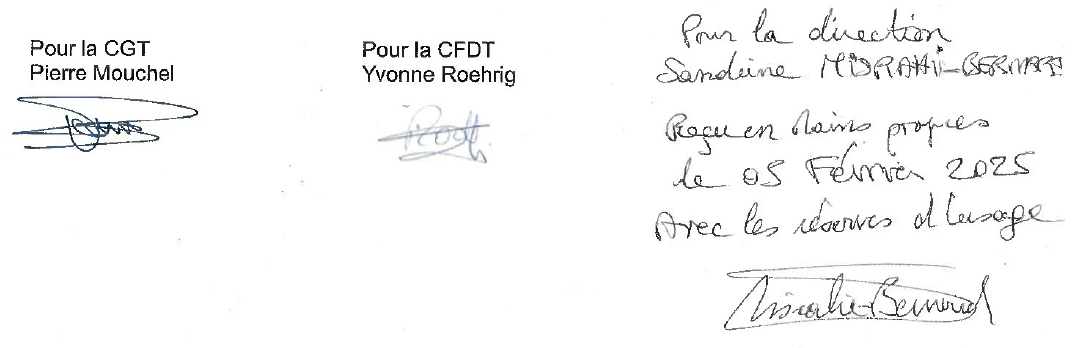 Pour la CGT
Pierre Mouchel
Pour la CFDT
Yvonne Roehrig
Pour la direction
Sandrine MISRAHI-BERNARD
Reçu en mains propres
le 05 Février 2025
Avec les réserves d'usage
Misrahi-Bernard